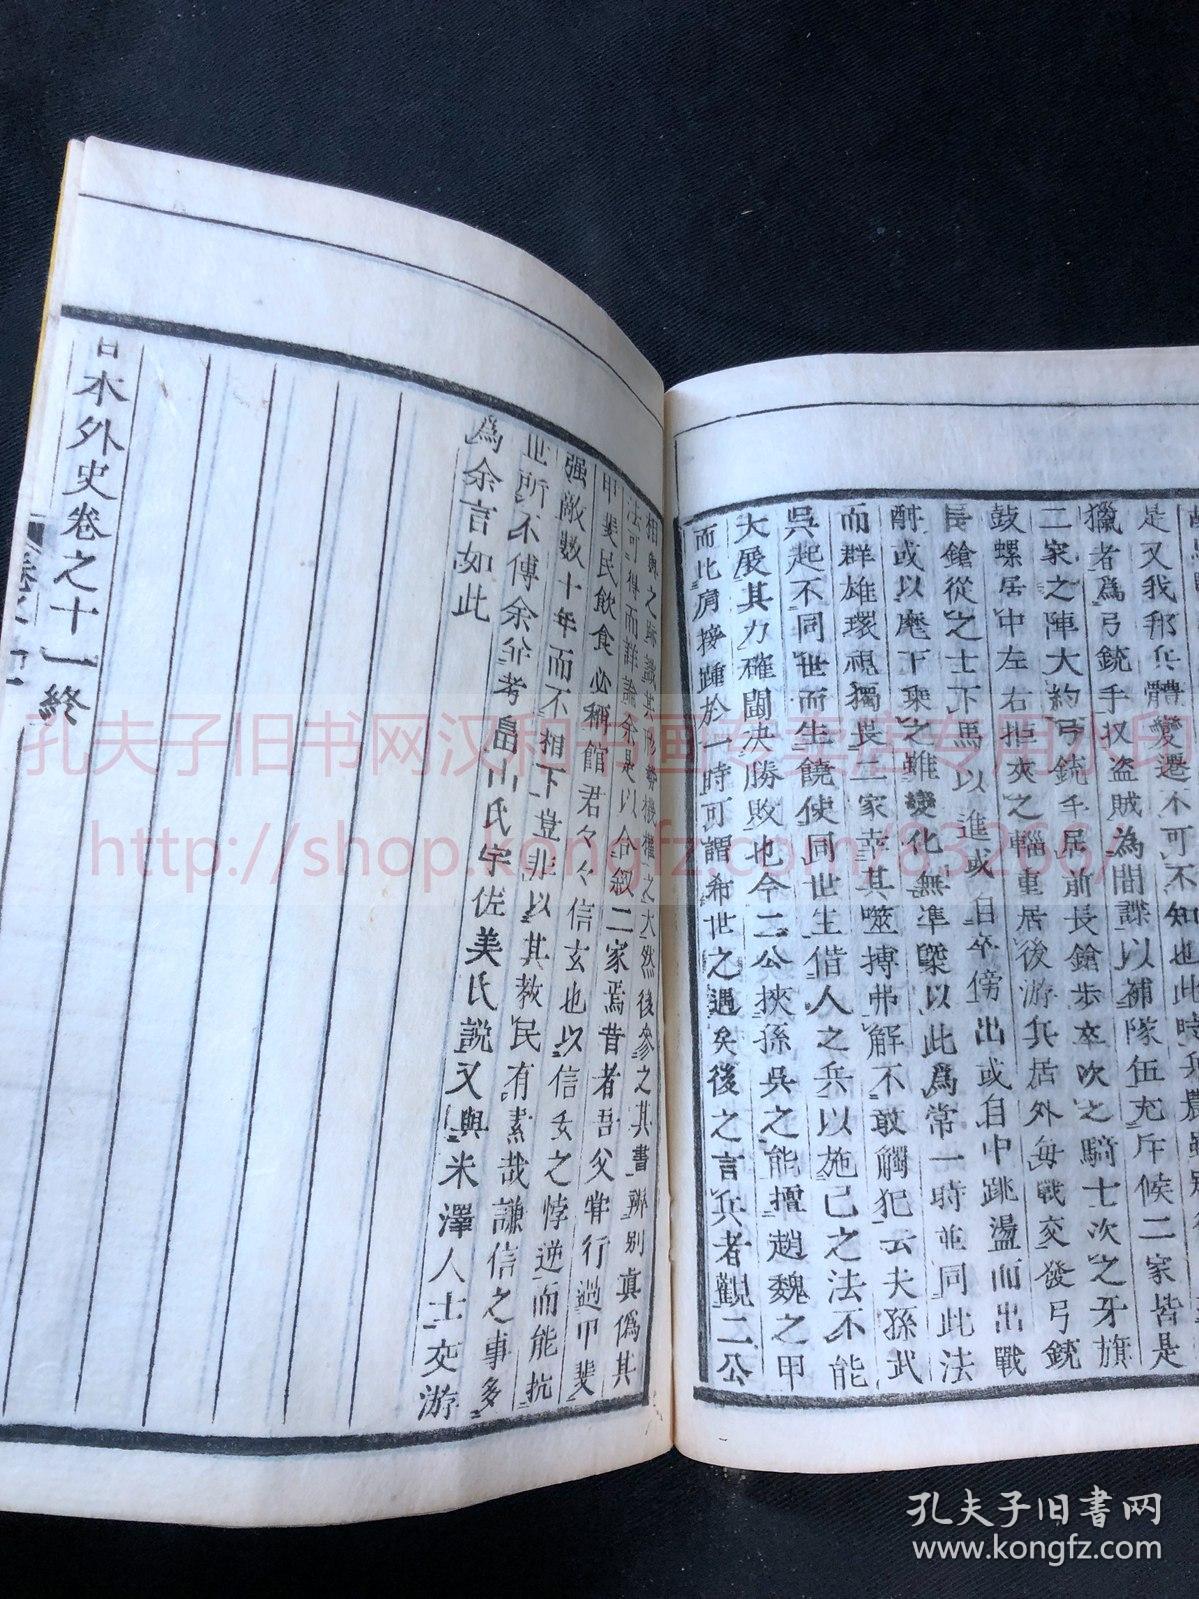 是又我邦兵體變遷不可不知也此時兵農
獵者爲弓銃手收盗賊為間諜以補隊伍充斥候二家皆是
二家之陣大約弓銃手居前長鎗歩卒次之騎士次之牙旗
鼓螺居中左右拒夾之輜重居後游兵居外毎戰交發弓銃
長鎗從之士下馬以進或自卒傍出或自中跳盪而出戰
酣或以麾下乘之雖變化無準槩以此爲常一時並同此法
而群雄環視獨畏二家幸其噬搏弗解不敢觸犯云夫孫武
吳起不同世而生饒使同世生偕人之兵以施己之法不能
大展其力確鬪決勝敗也今二公挾孫吳之能擅趙魏之甲
而比肩接踵於一時可謂希世之遇矣後之言兵者觀二公
相與之跡識其形勢機權之大然後參之其書辨別眞僞其
法可得而詳論余是以合叙二家焉昔者吾父甞行過甲斐
甲斐民飲食必稱館君々々信玄也以信玄之悖逆而能抗
强敵數十年而不相下豈非以其教民有素哉謙信之事多
世所不傳余竝考畠山氏宇佐美氏説又與米澤人士交游
為余言如此
日本外史卷之十一終
卷之十一
孔夫子旧书网汉和书画专卖店专用水印
http://shop.kongfz.com/83266/
孔夫子旧书网
www.kongfz.com